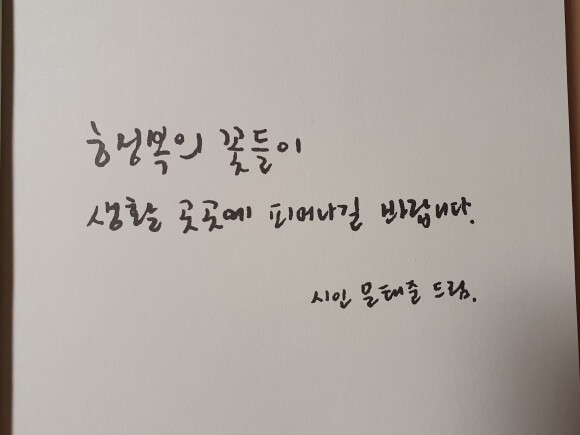 행복의 꽃들이
생활 곳곳에 피어나길 바랍니다.
시인 드림.